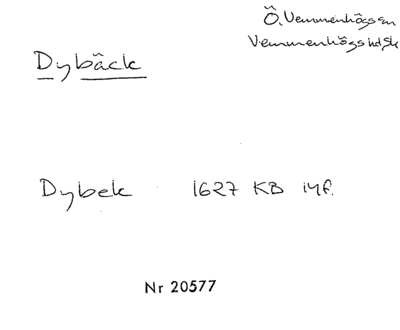 Ö. Vemmenhögs sn
Vemmenhögs hd, Sk
Dybäck
Dybek 1627 KB
Nr 20577